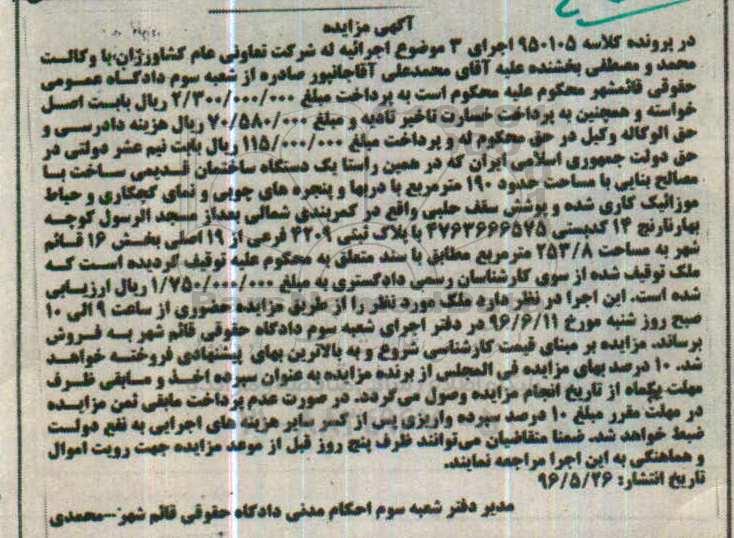 آگهی مزایده
در پرونده کلاسه ۹۵۰۱۰۵ اجرای ۳ موضوع اجرائیه له شرکت تعاونی عام کشاورزان با وکالت
محمد و مصطفی بخشنده علیه آقای محمدعلی آقاجانپور صادره از شعبه سوم دادگاه عمومی
حقوقی قائمشهر محکوم علیه محکوم است به پرداخت مبلغ ۲/۳۰۰/۰۰۰/۰۰۰ ریال بابت اصل
خواسته و همچنین به پرداخت خسارت تاخیر تادیه و مبلغ ۷۰/۵۸۰/۰۰۰ ریال هزینه دادرسی و
حق الوکاله وکیل در حق محکوم له و پرداخت مبلغ ۱۱۵/۰۰۰/۰۰۰ ریال بابت نیم عشر دولتی در
حق دولت جمهوری اسلامی ایران که در همین راستا یک دستگاه ساختمان قدیمی ساخت با
مصالح بنایی با مساحت حدود ۱۹۰ مترمربع با دربها و پنجره های چوبی و نمای گچکاری و حیاط
موزائیک کاری شده و پوشش سقف حلبی واقع در کمربندی شمالی بعداز مسجد الرسول کوچه
بهارنارنج ۱۴ کدپستی ۴۷۶۳۶۶۶۵۴۵ با پلاک ثبتی ۴۲۰۹ فرعی از ۱۹ اصلی بخش ۱۶ قائم
شهر به مساحت ۲۵۳/۸ مترمربع مطابق با سند متعلق به محکوم علیه توقیف گردیده است که
ملک توقیف شده از سوی کارشناسان رسمی دادگستری به مبلغ ۱/۷۵۰/۰۰۰/۰۰۰ ریال ارزیابی
شده است. این اجرا در نظر دارد ملک مورد نظر را از طریق مزایده حضوری از ساعت ۹ الی ۱۰
صبح روز شنبه مورخ ۹۶/۶/۱۱ در دفتر اجرای شعبه سوم دادگاه حقوقی قائم شهر به فروش
برساند. مزایده بر مبنای قیمت کارشناسی شروع و به بالاترین بهای پیشنهادی فروخته خواهد
شد. ۱۰ درصد بهای مزایده فی المجلس از برنده مزایده به عنوان سپرده اخذ و مابقی ظرف
مهلت یکماه از تاریخ انجام مزایده وصول می‌گردد. در صورت عدم پرداخت مابقی ثمن مزایده
در مهلت مقرر مبلغ ۱۰ درصد سپرده واریزی پس از کسر سایر هزینه های اجرایی به نفع دولت
ضبط خواهد شد. ضمنا متقاضیان می‌توانند ظرف پنج روز قبل از موعد مزایده جهت رویت اموال
و هماهنگی به این اجرا مراجعه نمایند.
تاریخ انتشار: ۹۶/۵/۲۶
مدیر دفتر شعبه سوم احکام مدنی دادگاه حقوقی قائم شهر---محمدی